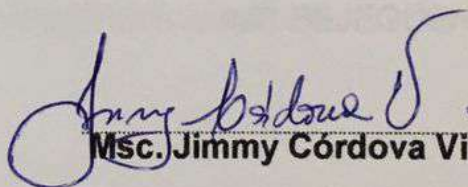 Jimmy Córdova V
Msc. Jimmy Córdova Vi